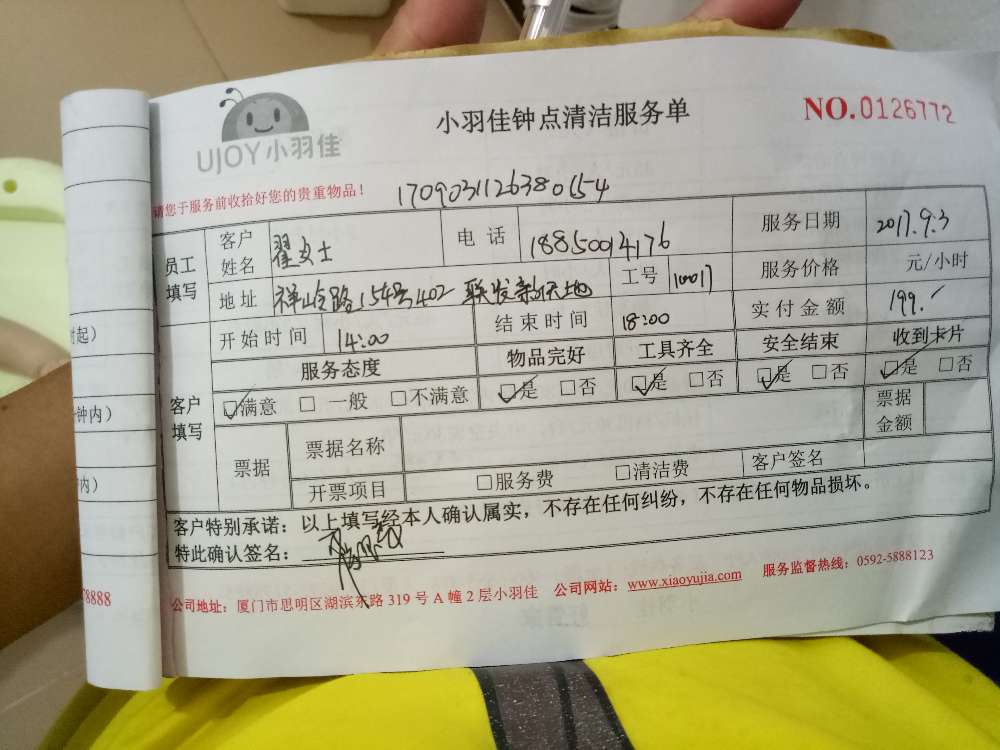 UJOY小羽佳
小羽佳钟点清洁服务单
NO.0126772
请您于服务前收拾好您的贵重物品！
1709031126380154
员工填写 客户姓名 翟女士 电话 18850014176 服务日期 2017.9.3
地址 祥岭路154号402 联发新天地 工号 10017 服务价格 元/小时
客户填写 开始时间 14:00 结束时间 18:00 实付金额 199.
服务态度 物品完好 工具齐全 安全结束 收到卡片
☑满意 □一般 □不满意 ☑是 □否 ☑是 □否 ☑是 □否 ☑是 □否
票据 票据名称 票据金额
开票项目 □服务费 □清洁费 客户签名
客户特别承诺：以上填写经本人确认属实，不存在任何纠纷，不存在任何物品损坏。
特此确认签名：
公司地址：厦门市思明区湖滨东路319号A幢2层小羽佳 公司网站：www.xiaoyujia.com 服务监督热线：0592-5888123
时起）
钟内）
内）
78888